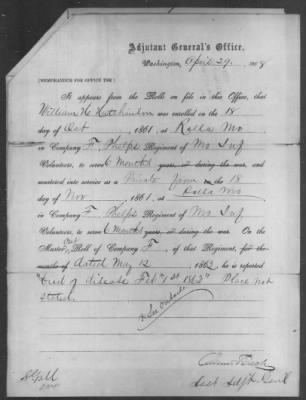 Adjutant General's Office,
Washington, April 29, 1868
[MEMORANDUM FOR OFFICE USE.]
It appears from the Rolls on file in this Office, that
William H. Hutchinson was enrolled on the 18
day of Oct, 1861, at Rolla Mo
in Company F, Phelps Regiment of Mo Inf
Volunteers, to serve 6 months years, or during the war, and
mustered into service as a Private from on the 18
day of Nov, 1861, at Rolla Mo
in Company F, Phelps Regiment of Mo Inf
Volunteers, to serve 6 months years, or during the war. On the
Muster Out Roll of Company F, of that Regiment, for the
months of dated May 12, 1862, he is reported
"Died of disease Feb 1st 1862" Place not
stated.